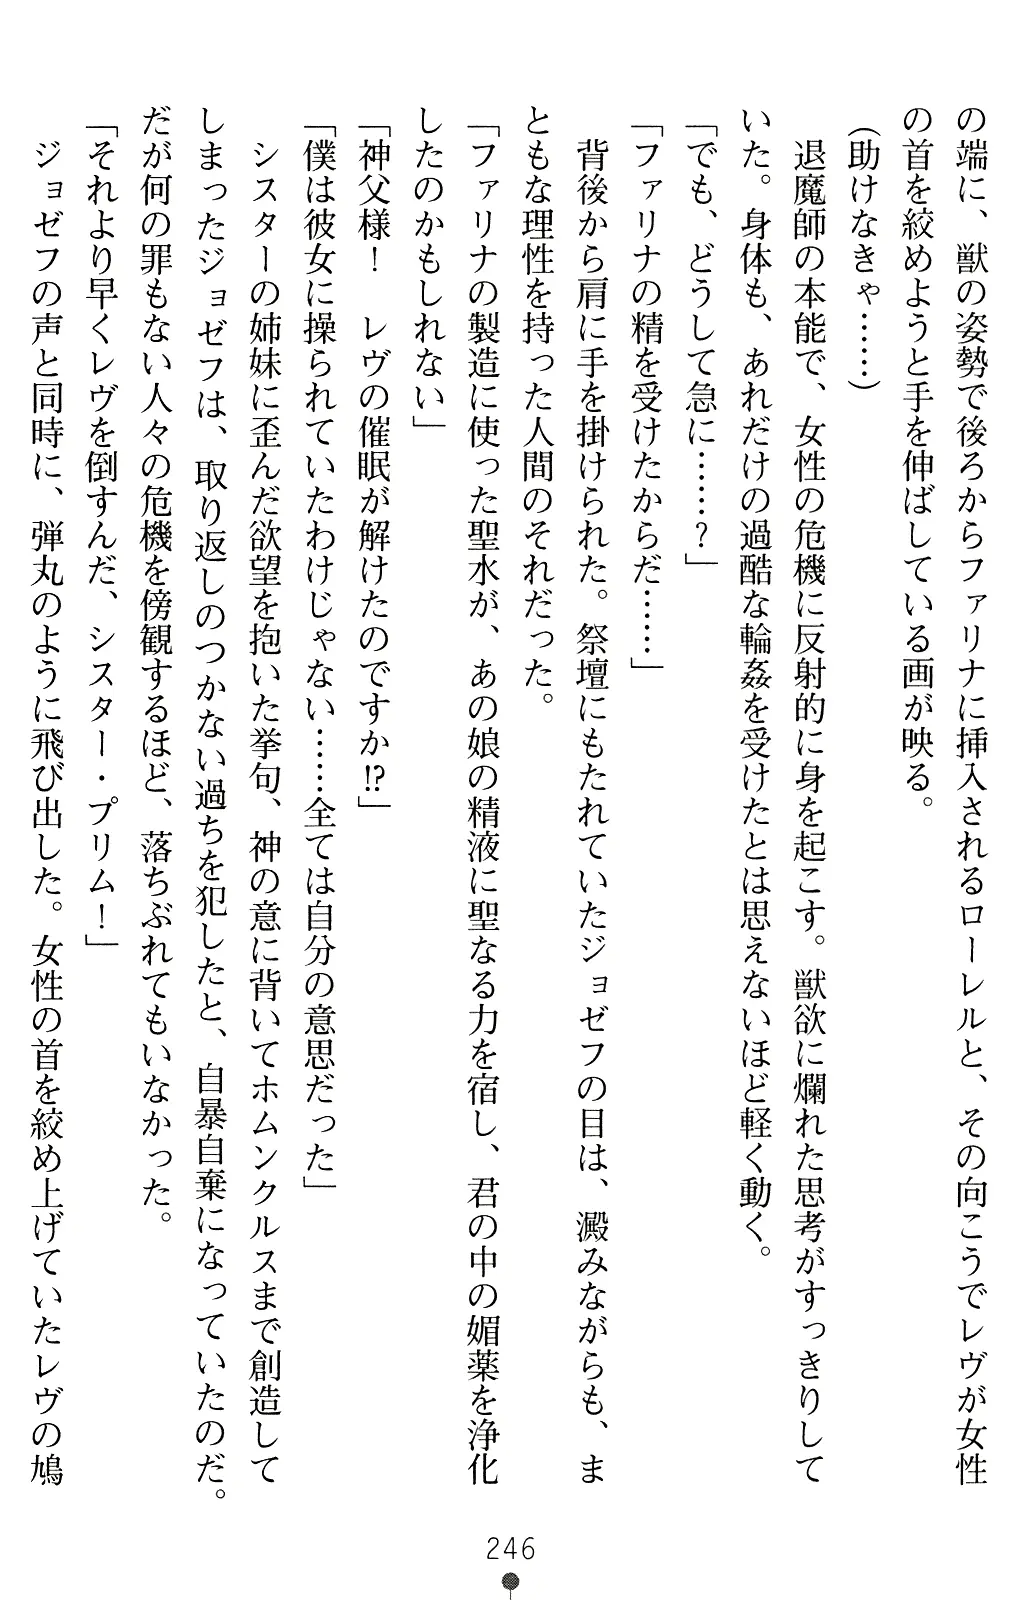 の端に、獣の姿勢で後ろからファリナに挿入されるローレルと、その向こうでレヴが女性
の首を絞めようと手を伸ばしている画が映る。
(助けなきゃ……)
退魔師の本能で、女性の危機に反射的に身を起こす。獣欲に爛れた思考がすっきりして
いた。身体も、あれだけの過酷な輪姦を受けたとは思えないほど軽く動く。
「でも、どうして急に……?」
「ファリナの精を受けたからだ……」
背後から肩に手を掛けられた。祭壇にもたれていたジョゼフの目は、澱みながらも、ま
ともな理性を持った人間のそれだった。
「ファリナの製造に使った聖水が、あの娘の精液に聖なる力を宿し、君の中の媚薬を浄化
したのかもしれない」
「神父様! レヴの催眠が解けたのですか!?」
「僕は彼女に操られていたわけじゃない……全ては自分の意思だった」
シスターの姉妹に歪んだ欲望を抱いた挙句、神の意に背いてホムンクルスまで創造して
しまったジョゼフは、取り返しのつかない過ちを犯したと、自暴自棄になっていたのだ。
だが何の罪もない人々の危機を傍観するほど、落ちぶれてもいなかった。
「それより早くレヴを倒すんだ、シスター・プリム!」
ジョゼフの声と同時に、弾丸のように飛び出した。女性の首を絞め上げていたレヴの鳩
246